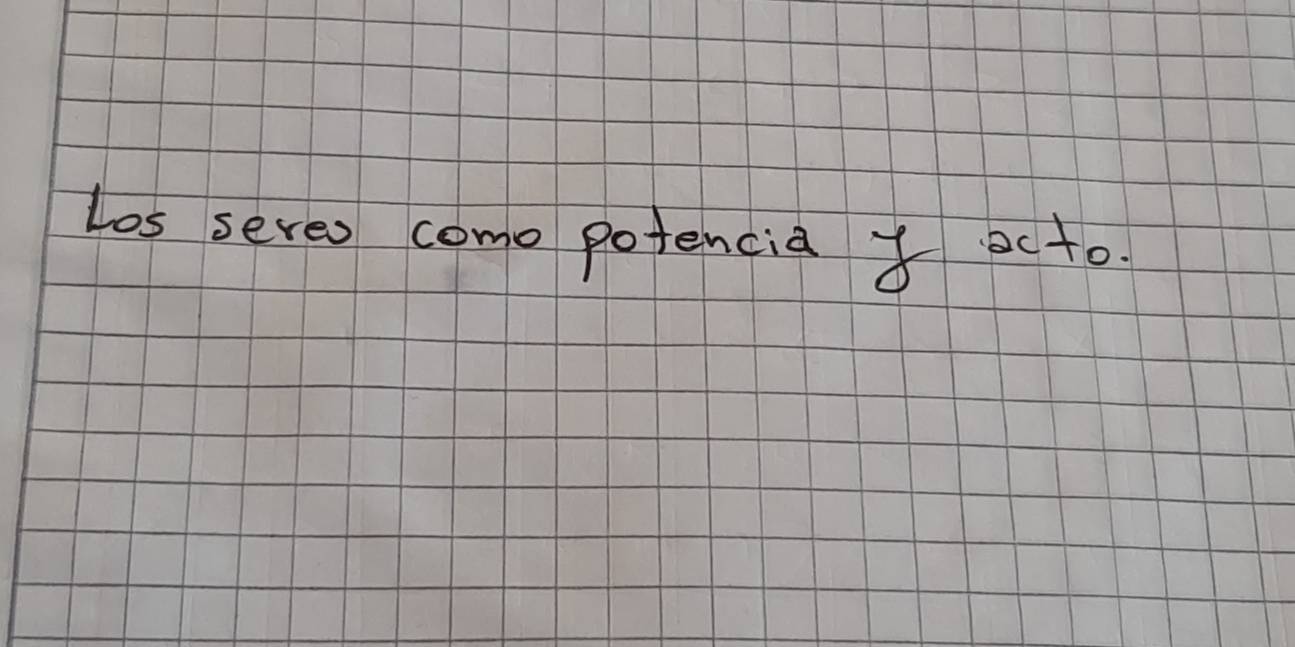 Los seres como potencia y acto.